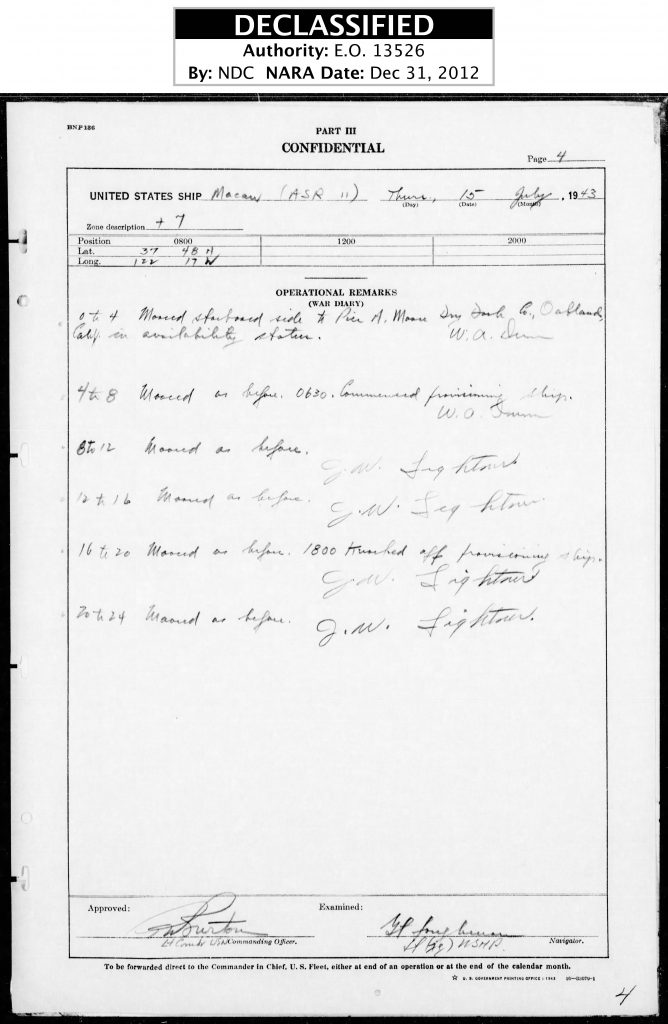 DECLASSIFIED
Authority: E.O. 13526
By: NDC NARA Date: Dec 31, 2012
BNP 136
PART III
CONFIDENTIAL
Page 4
UNITED STATES SHIP Macaw (ASR 11) Thurs, 15 July, 1943
(Day) (Date) (Month)
Zone description + 7
Position 0800 1200 2000
Lat. 37 48 N
Long. 122 17 W
OPERATIONAL REMARKS
(WAR DIARY)
0 to 4 Moored starboard side to Pier A. Moore Dry Dock Co., Oakland,
Calif. in availability status. W. A. Dunn
4 to 8 Moored as before. 0630. Commenced provisioning ship.
W. A. Dunn
8 to 12 Moored as before.
J. W.
12 to 16 Moored as before.
J. W.
16 to 20 Moored as before. 1800 Knocked off provisioning ship.
J. W.
20 to 24 Moored as before.
J. W.
Approved: Examined:
Burton
Lt Comdr USN Commanding Officer. Lt (jg) USNR Navigator.
To be forwarded direct to the Commander in Chief, U. S. Fleet, either at end of an operation or at the end of the calendar month.
☆ U. S. GOVERNMENT PRINTING OFFICE : 1943
4